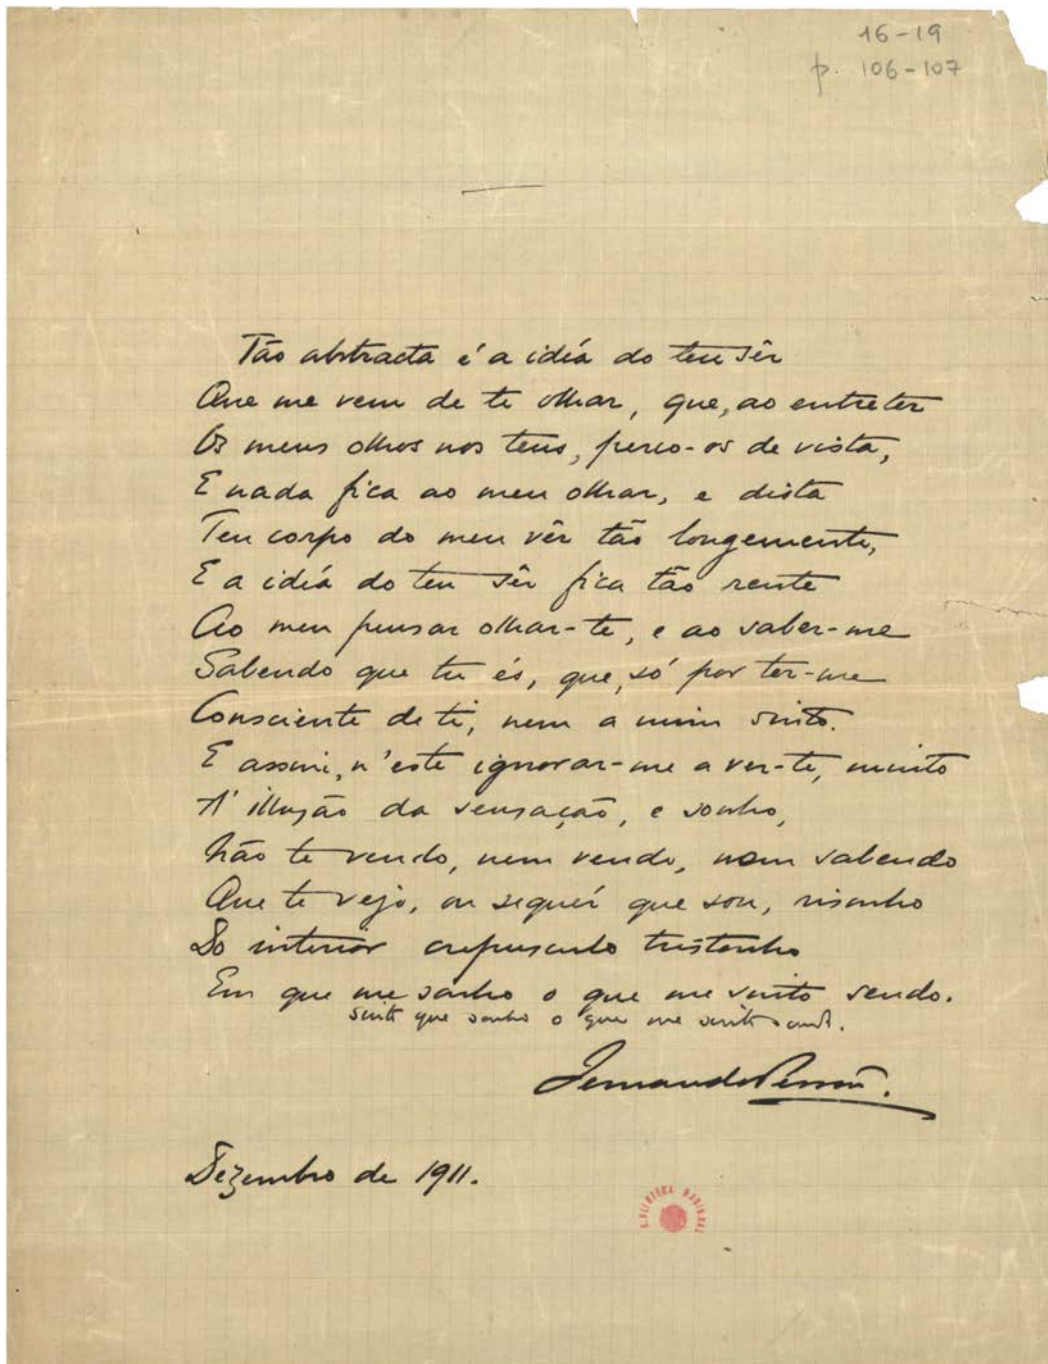 16-19
p. 106-107
Tão abstracta é a idéa do teu sêr
Que me vem de te olhar, que, ao entreter
Os meus olhos nos teus, perco-os de vista,
E nada fica ao meu olhar, e dista
Teu corpo do meu vêr tão longemente,
E a idéa do teu sêr fica tão rente
Ao meu pensar olhar-te, e ao saber-me
Sabendo que tu és, que, só por ter-me
Consciente de ti, nem a mim sinto.
E assim, n'este ignorar-me a ver-te, minto
A illusão da sensação, e sonho,
Não te vendo, nem vendo, nem sabendo
Que te vejo, ou sequér que sou, risonho
Do interior crepusculo tristonho
Em que me sonho o que me sinto sendo.
sinto que sonho o que me sinto sendo.
Fernando Pessôa.
Dezembro de 1911.
BIBLIOTECA NACIONAL